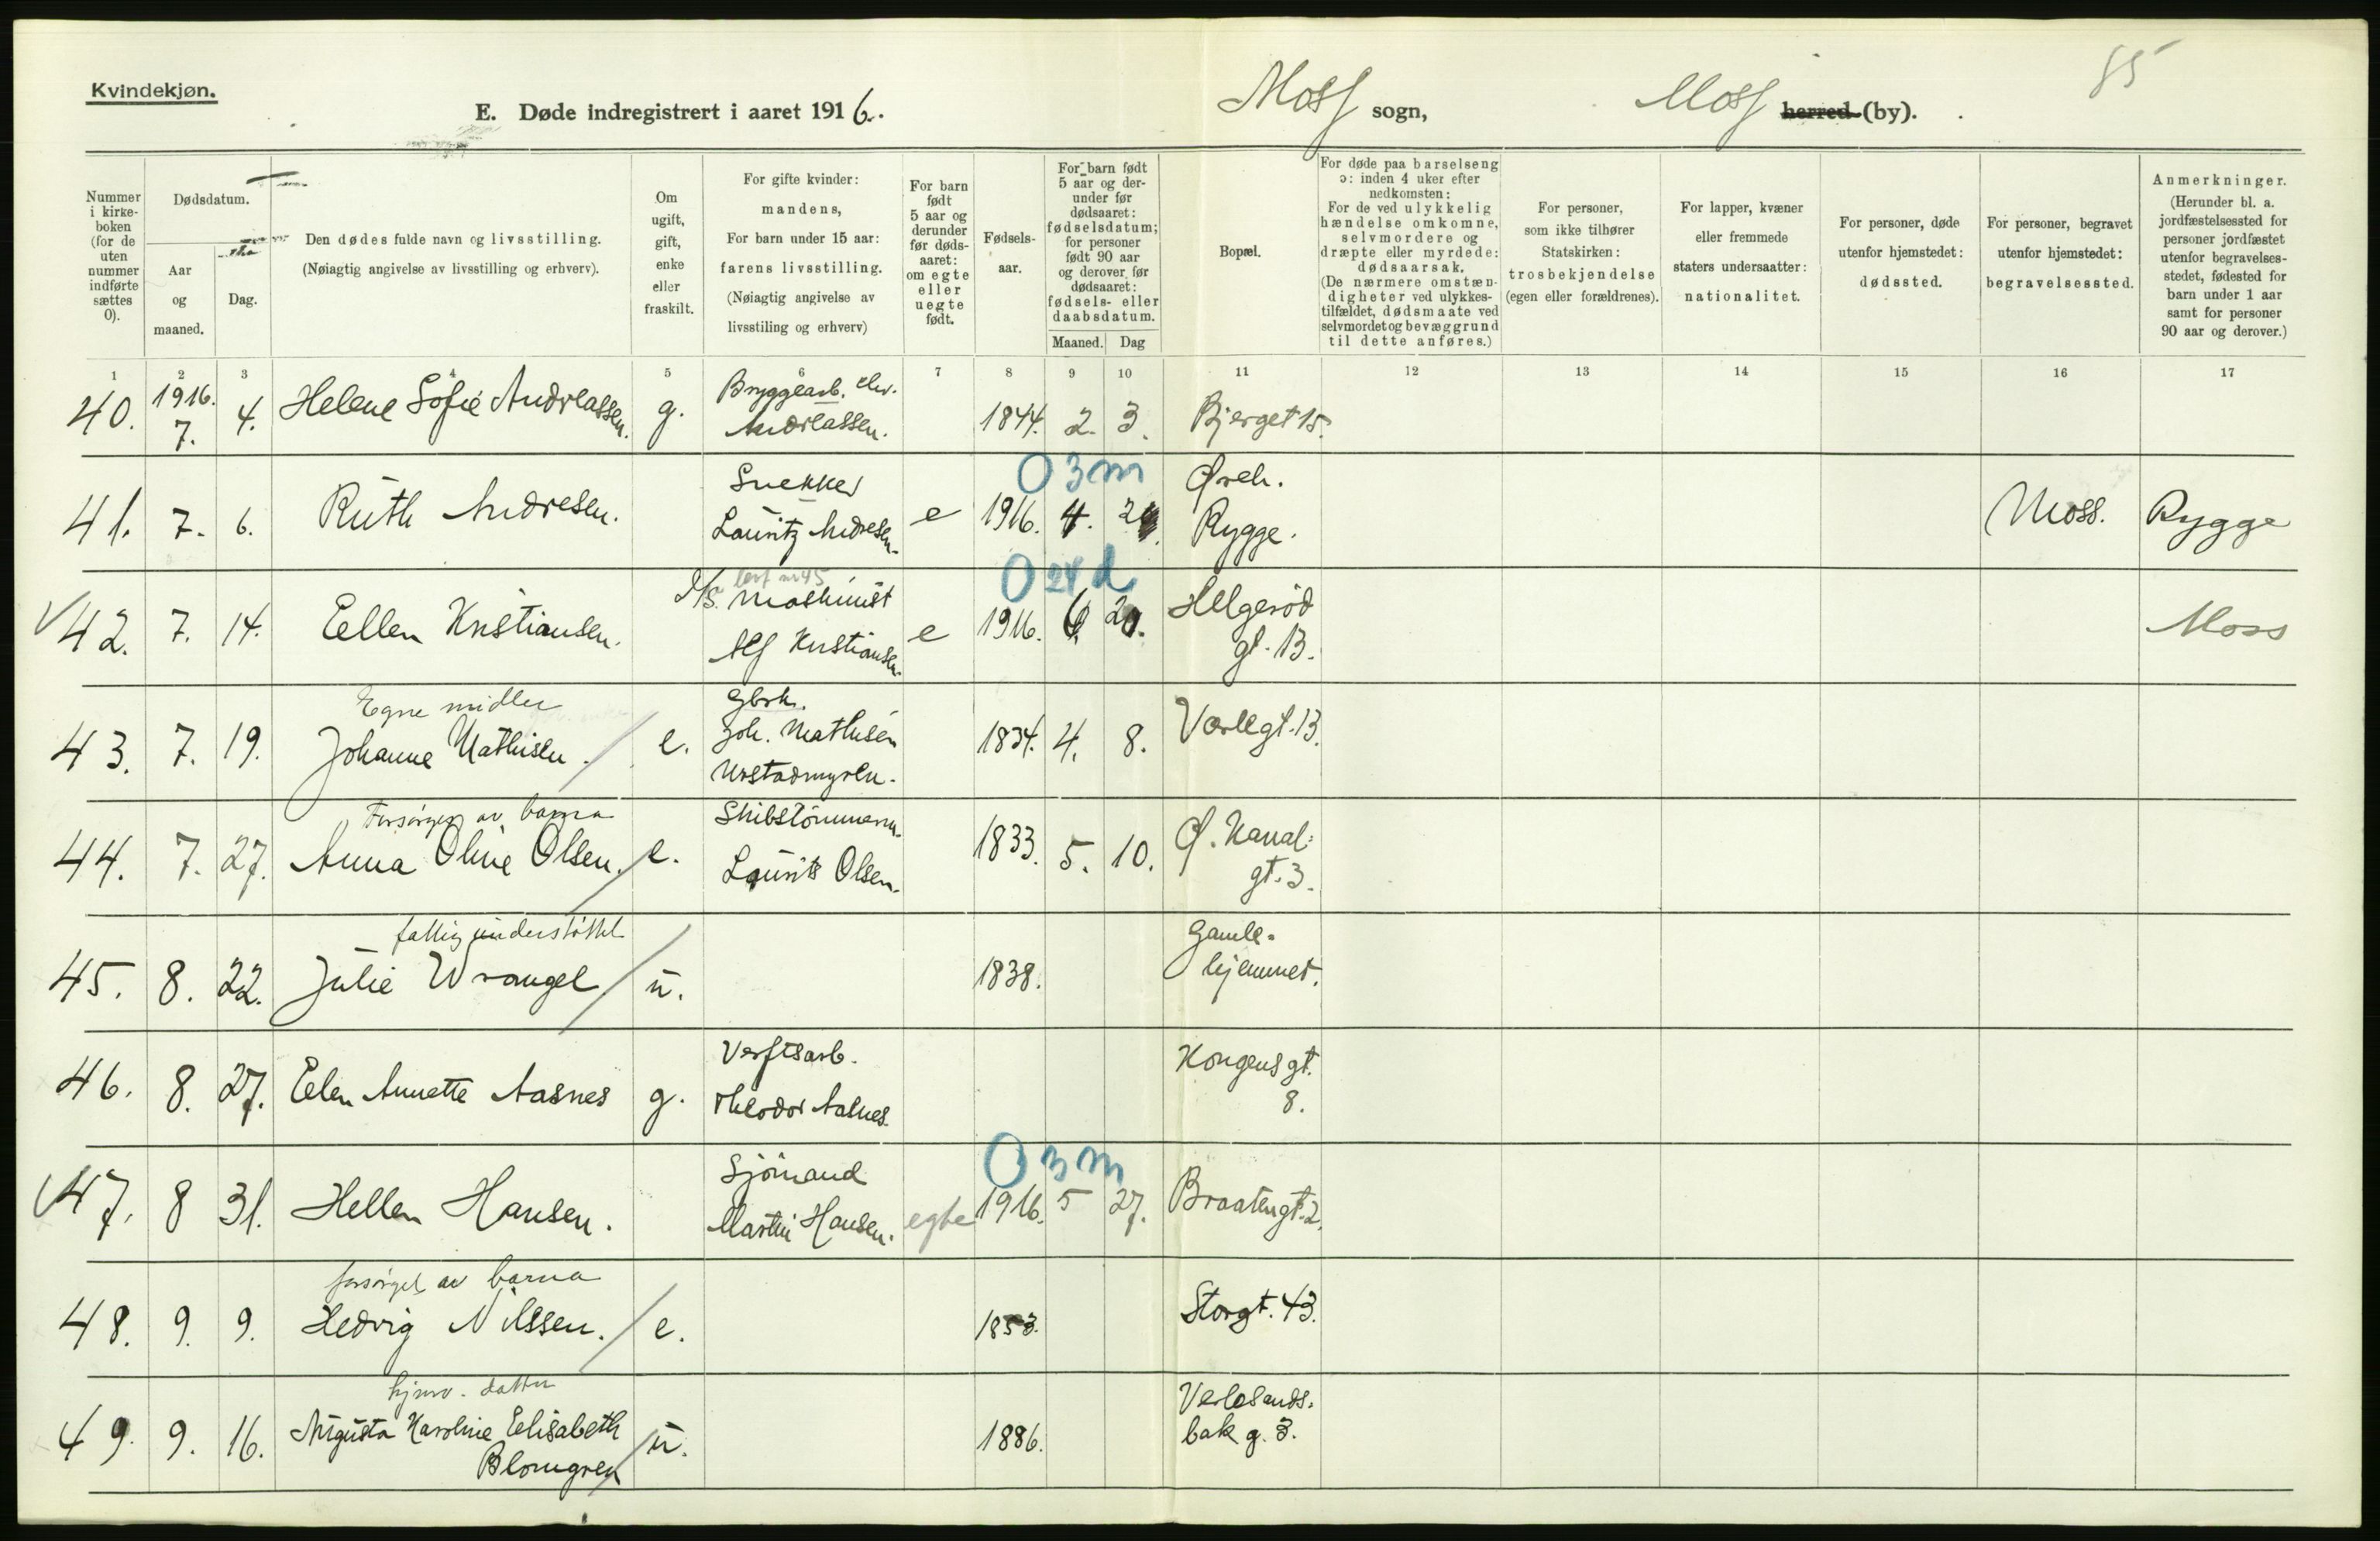 85
Kvindekjøn.
E. Døde indregistrert i aaret 1916. Moss sogn, Moss herred (by).
Nummer i kirke-boken (for de uten nummer indførte sættes 0).
Dødsdatum.
Aar og maaned.
Dag.
Den dødes fulde navn og livsstilling.
(Nøiagtig angivelse av livsstilling og erhverv).
Om ugift, gift, enke eller fraskilt.
For gifte kvinder: mandens,
For barn under 15 aar: farens livsstilling.
(Nøiagtig angivelse av livsstiling og erhverv)
For barn født 5 aar og derunder før døds-aaret: om egte eller uegte født.
Fødsels-aar.
For barn født 5 aar og der-under før dødsaaret: fødselsdatum; for personer født 90 aar og derover før dødsaaret: fødsels- eller daabsdatum.
Maaned. Dag
Bopæl.
For døde paa barselseng ɔ: inden 4 uker efter nedkomsten:
For de ved ulykkelig hændelse omkomne, selvmordere og dræpte eller myrdede: dødsaarsak.
(De nærmere omstæn-digheter ved ulykkes-tilfældet, dødsmaate ved selvmordet og bevæggrund til dette anføres.)
For personer, som ikke tilhører Statskirken: trosbekjendelse (egen eller forældrenes).
For lapper, kvæner eller fremmede staters undersaatter: nationalitet.
For personer, døde utenfor hjemstedet: dødssted.
For personer, begravet utenfor hjemstedet: begravelsessted.
Anmerkninger.
(Herunder bl. a. jordfæstelsessted for personer jordfæstet utenfor begravelses-stedet, fødested for barn under 1 aar samt for personer 90 aar og derover.)
1 2 3 4 5 6 7 8 9 10 11 12 13 14 15 16 17
40. 1916. 7. 4. Helene Sofie Andreassen. g. Bryggearb. Chr. Andreassen. 1844. 2. 3. Bjerget 15.
0 3 m
41. 7. 6. Ruth Andresen. Snekker Lauritz Andresen. e 1916. 4. Øreh. Rygge. Moss. Rygge
0 24 d
42. 7. 14. Ellen Kristiansen. D/S. maskinist Alf Kristiansen. e 1916. 6. 20. Helgerød gt. 13. Moss
Egne midler
43. 7. 19. Johanne Mathisen. e. Gbrk. Joh. Mathisen 1834. 4. 8. Værlegt. 13.
Forsørget av barna
44. 7. 27. Anna Oline Olsen. e. Skibstömmerm. Laurits Olsen. 1833. 5. 10. Ø. Kanal-gt. 3.
fattig understöttet
45. 8. 22. Julie Wrangel u. 1838. Gamle-hjemmet.
46. 8. 27. Elen Annette Aasnes g. Verftsarb. Theodor Aasnes. Kongens gt. 8.
0 3 m
47. 8 31. Hellen Hansen. Sjömand Martin Hansen. egte 1916. 5 27. Braatengt. 2.
forsørget av barna
48. 9. 9. Hedvig Nilssen. e. 1853. Storgt. 43.
hjmv. datter
49. 9. 16. Augusta Karoline Elisabeth Blomgren u. 1886. Verlesands. bak g. 3.